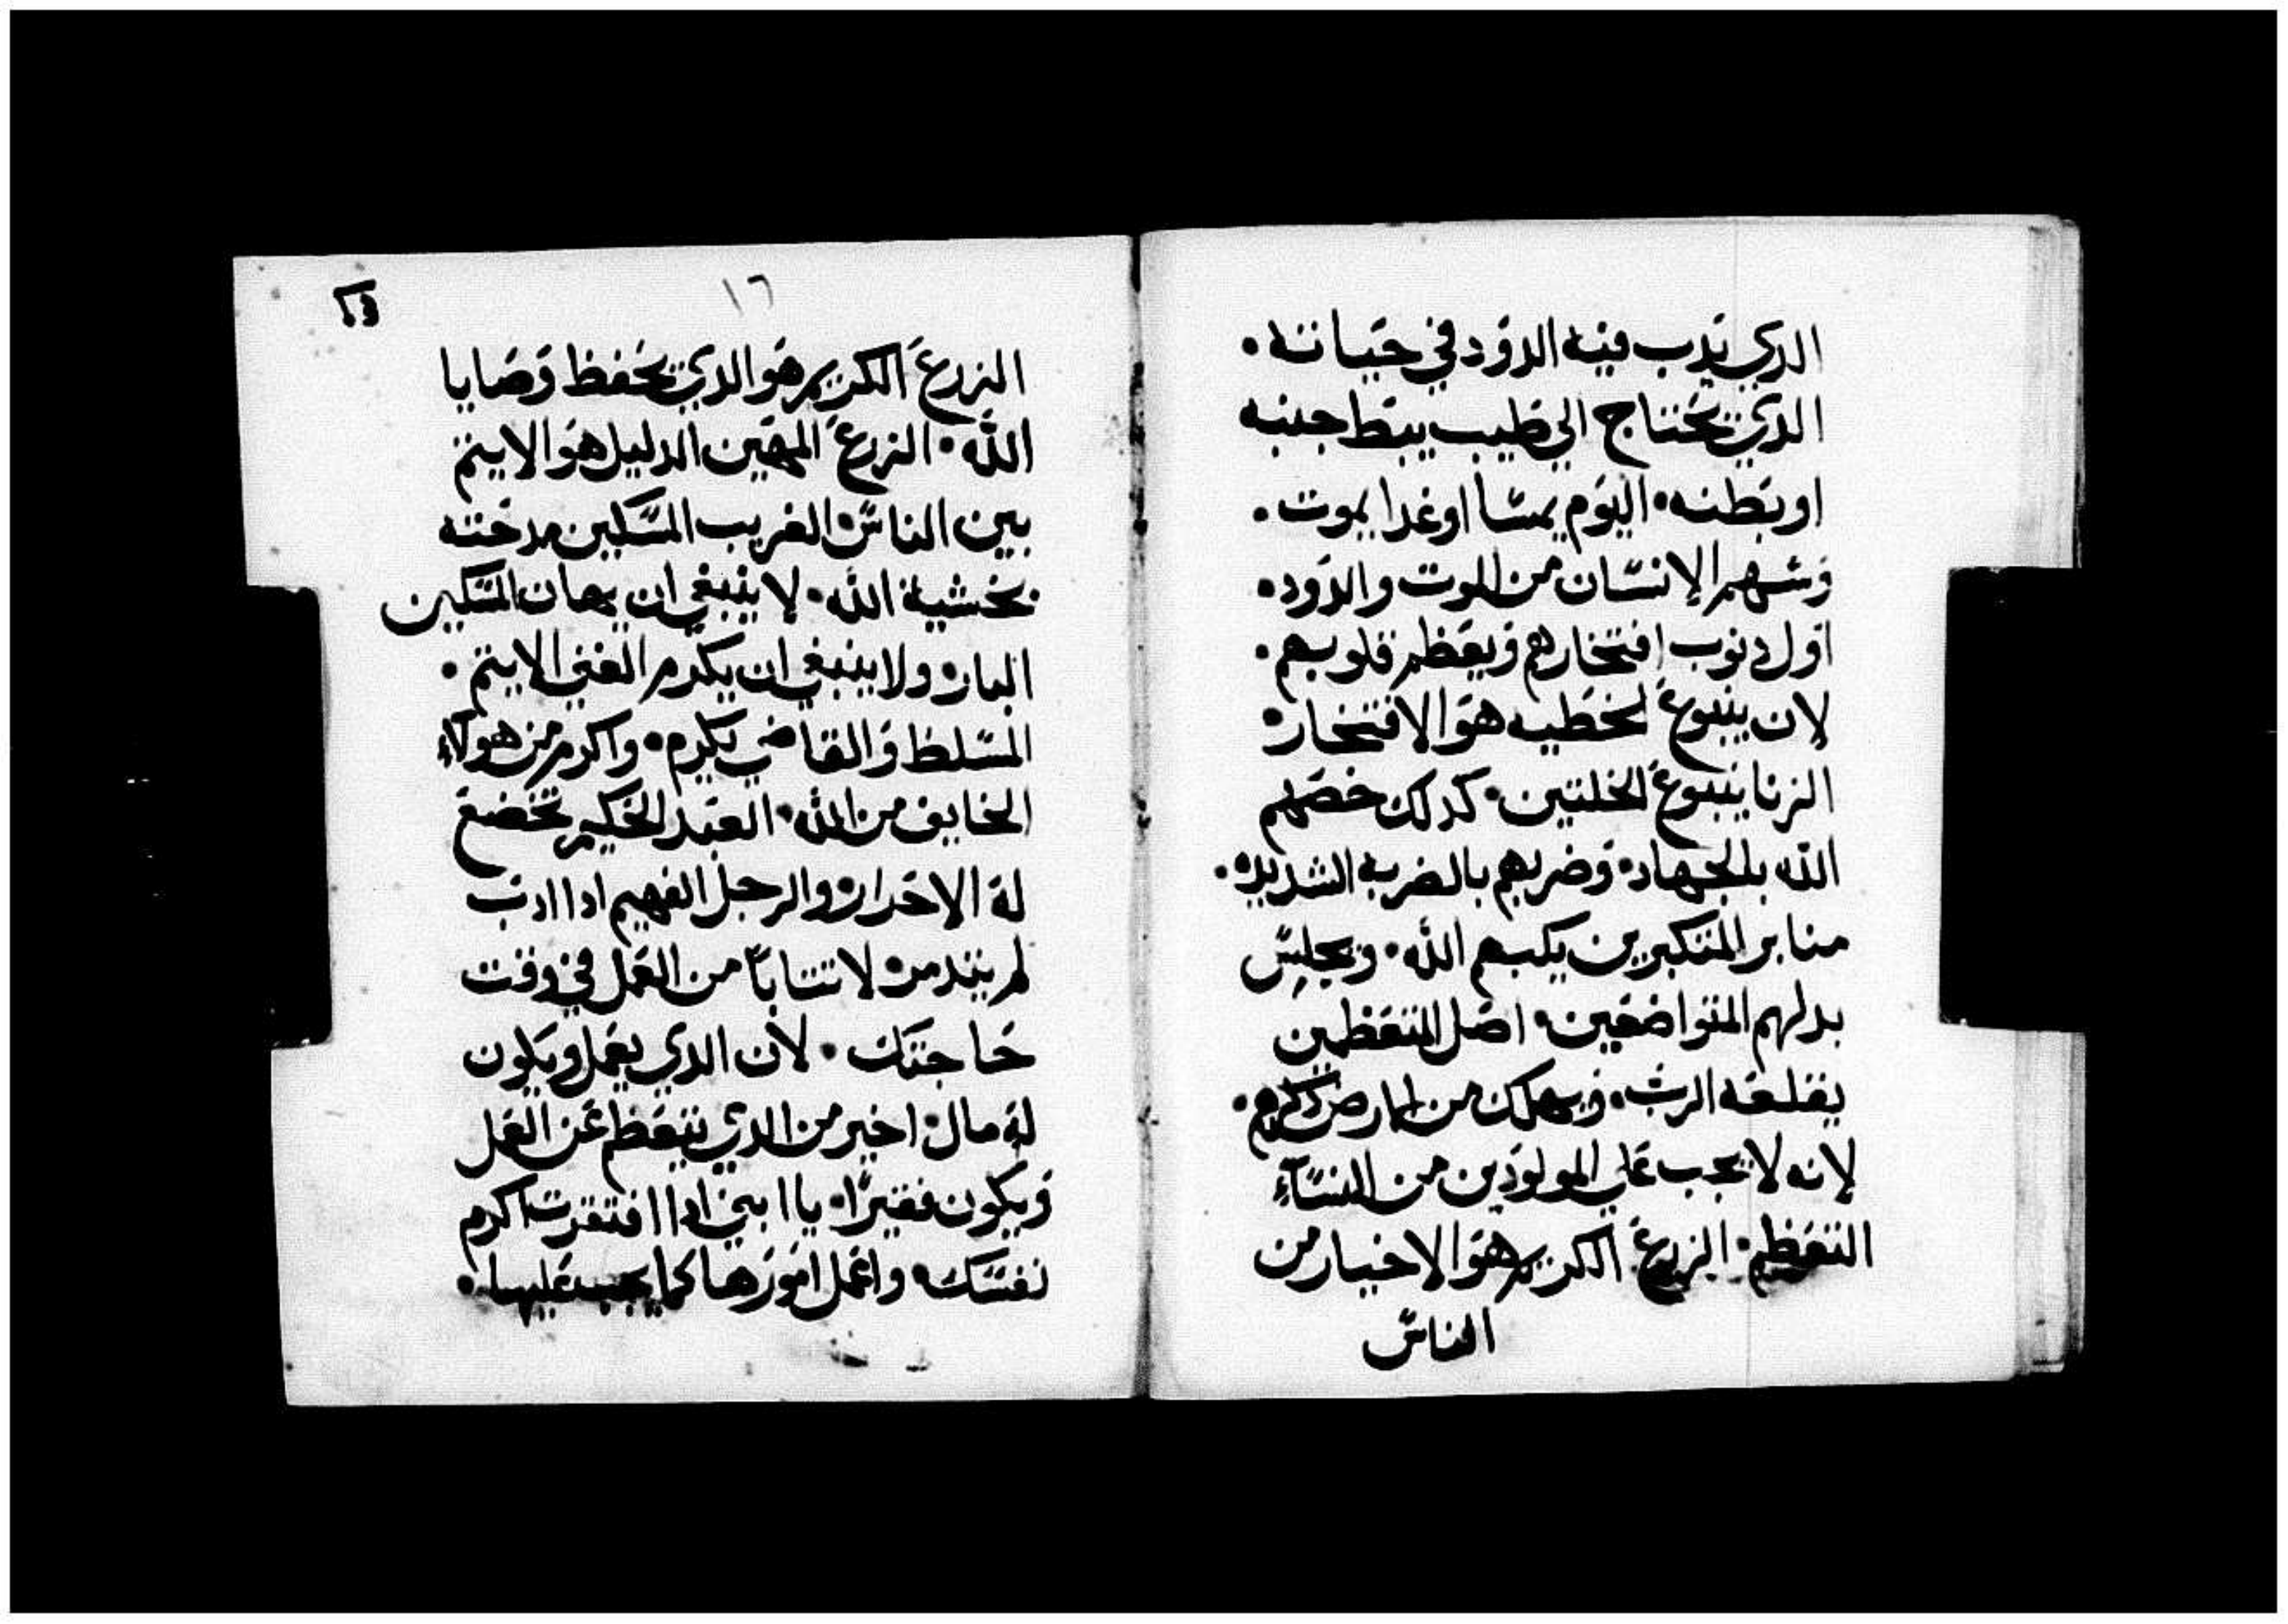 الدي يدب فيه الدود في حياته.
الدي يحتاج الي طبيب يبط جنبه
او بطنه. اليوم يمسا او غدا يموت.
وسهم الانسان من الموت والدود.
اول دنوب افتخارهم ويعظم قلوبهم.
لان ينبوع الخطيه هو الافتخار.
الزنا ينبوع الخلتين. كدلك خصهم
الله بالجهاد. وضربهم بالضربه الشديده.
منابر المتكبرين يكبهم الله. ويجلس
بدلهم المتواضعين. اصل المتعظمين
يقلعه الرب. ويهلك من الارض ذكرهم.
لانه لا يجب علي المولودين من النساء
التعظم. الزرع الكريم هو الاخيار من
الناس
١٦
الزرع الكريم هو الدي يحفظ وصايا
الله. الزرع المهين الدليل هو الايتم
بين الناس. الغريب المسكين مدحته
بخشية الله. لا ينبغي ان يهان المسكين
البار. ولا ينبغي ان يكرم الغني الايتم.
المسلط والقاضي يكرم. واكرم من هولاء
الخايف من الله. العبد الحكيم تخضع
له الاحرار. والرجل الفهيم ادا ادب
لم يتدمر. لا تتابا من العمل في وقت
حاجتك. لان الدي يعمل ويكون
له مال. اخير من الدي يتعظم عن العمل
ويكون فقيرا. يا ابني ادا افتقرت اكرم
نفسك. واعمل امورها كما يجب عليها.